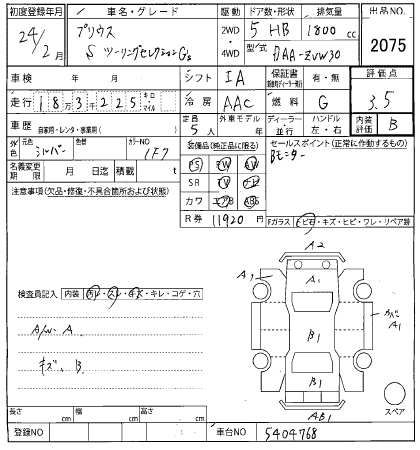 初度登録年月 車名・グレード 駆動 ドア数・形状 排気量 出品NO.
24/2月 プリウス 2WD 5 HB 1800 cc 2075
S ツーリングセレクションG's 4WD 型式 DAA-ZVW30
車検 年 月 シフト IA 保証書 有・無 評価点
走行 18万3千225 キロ・マイル 冷房 AAC 燃料 G 3.5
車歴 自家用・レンタ・事業用( ) 定員 5人 外車モデル 年 ディーラー・並行 ハンドル 左・右 内装評価 B
外色 元色 シルバー 色替 カラーNO 1F7 装備品(純正品に限る) セールスポイント(正常に作動するもの)
名義変更期限 月 日迄 積載 t PS PW AW Bモニター
注意事項(欠品・修復・不具合箇所および状態) SR TV ナビ
カワ エアB ABS
R券 11920 円 Fガラス トビ石・キズ・ヒビ・ワレ・リペア跡
検査員記入 内装 汚レ・スレ・キズ・キレ・コゲ・穴
A/W A
キズ、B
A2
A1
A1
カバ A1
B1
B1
AB1
スペア
長さ cm 幅 cm 高さ cm
登録NO 車台NO 5404768